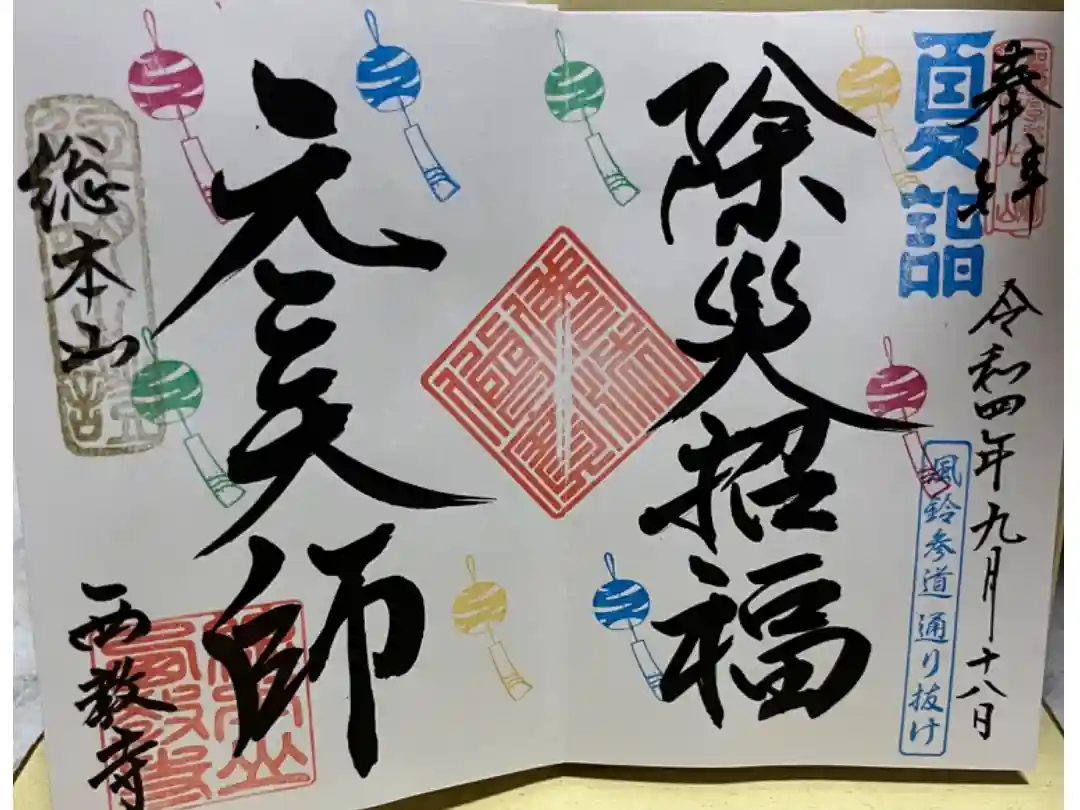 奉拝
夏詣
令和四年九月十八日
風鈴参道通り抜け
除災招福
元三大師
総本山
西教寺